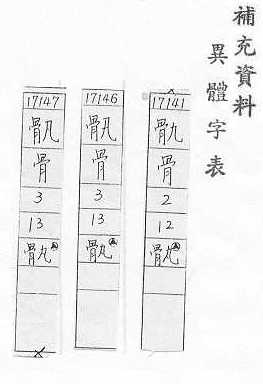 補充資料
異體字表
17141
骩
骨
2
12
骫
17146
骨
3
13
骫
17147
骨
3
13
骫